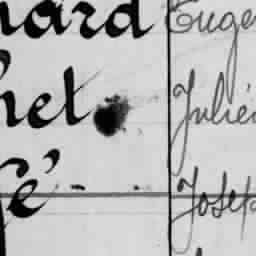 nard Eugè
het Julie
fé Josep